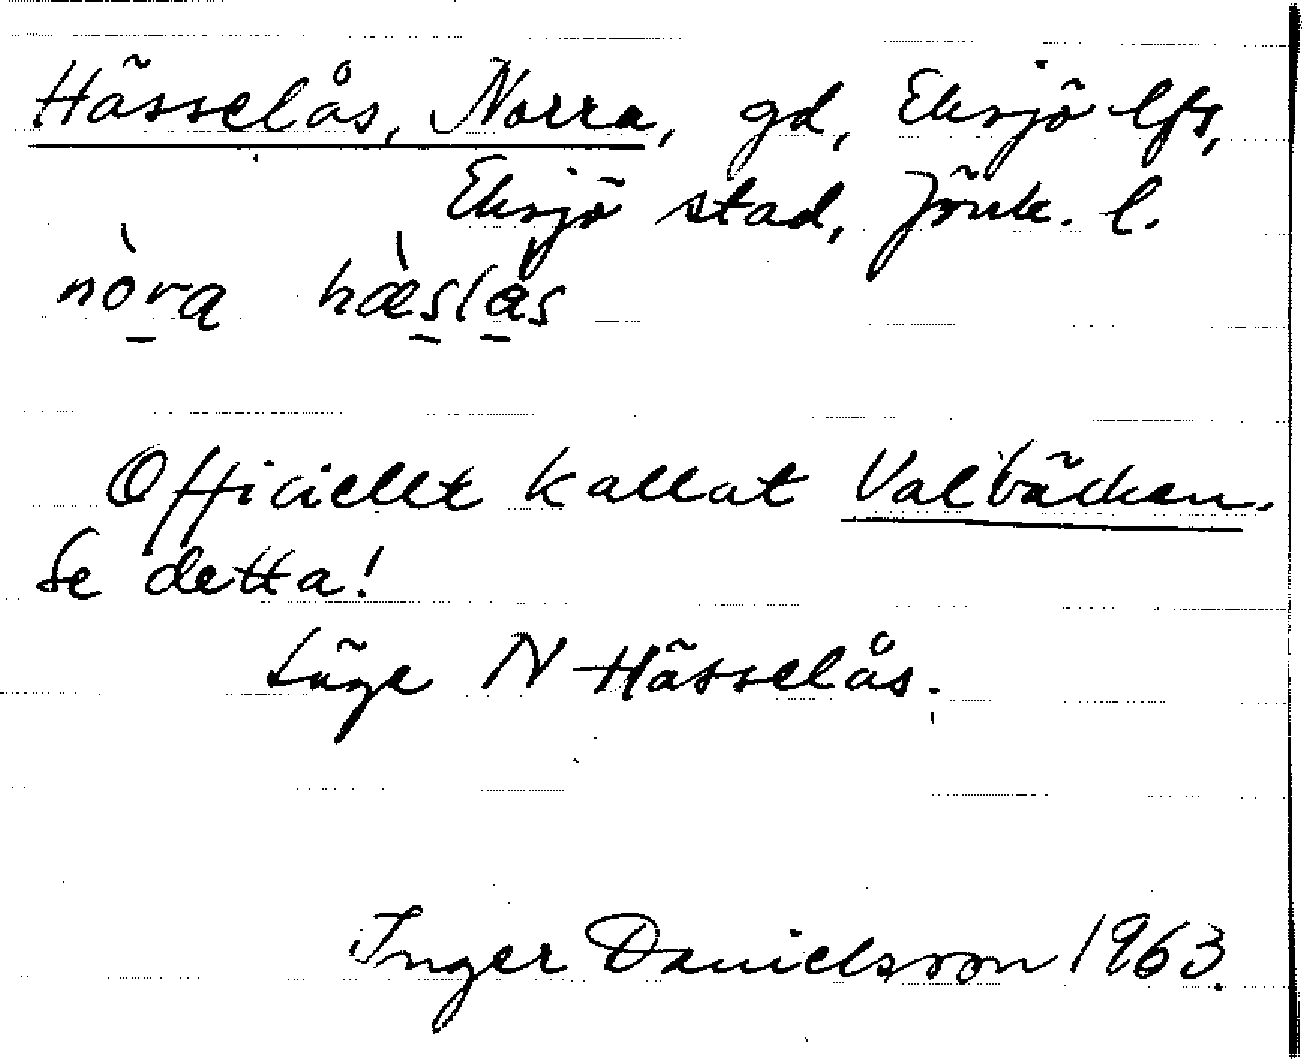 Hässelås, Norra, gd, Eksjö lfs,
Eksjö stad, Jönk. l.
nòra hæ̀slås
Officiellt kallat Valbäcken.
Se detta!
Läge N Hässelås.
Inger Danielsson 1963.